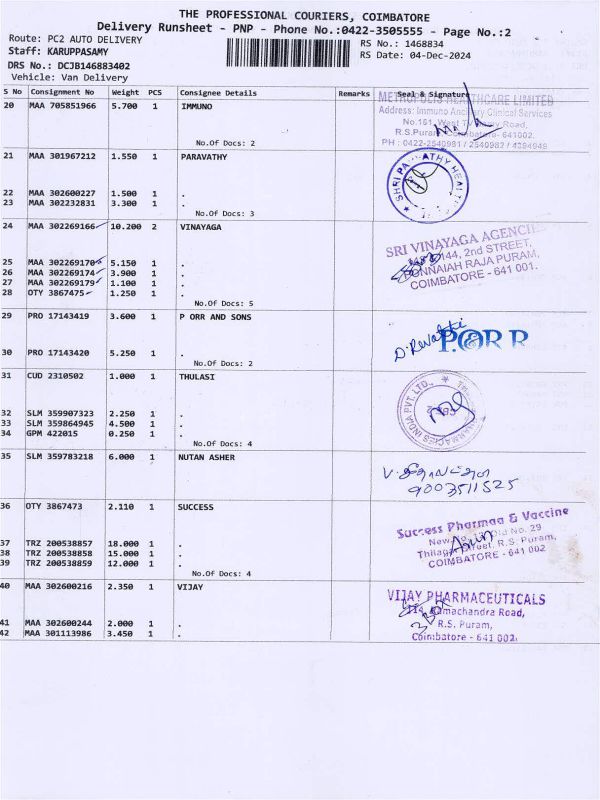 THE PROFESSIONAL COURIERS, COIMBATORE
Delivery Runsheet - PNP - Phone No.:0422-3505555 - Page No.:2
Route: PC2 AUTO DELIVERY
Staff: KARUPPASAMY
RS No.: 1468834
DRS No.: DCJB146883402
RS Date: 04-Dec-2024
Vehicle: Van Delivery
S No Consignment No Weight PCS Consignee Details Remarks Seal & Signature
20 MAA 705851966 5.700 1 IMMUNO
METROPOLIS HEALTHCARE LIMITED
Address: Immuno Ancillary Clinical Services
No.161, West T.V. Samy Road,
R.S.Puram, Coimbatore- 641002.
PH : 0422-2540981 / 2540982 / 4394949
No.Of Docs: 2
21 MAA 301967212 1.550 1 PARAVATHY
22 MAA 302600227 1.500 1 .
23 MAA 302232831 3.300 1 .
No.Of Docs: 3
24 MAA 302269166 10.200 2 VINAYAGA
SRI VINAYAGA AGENCIE
144, 2nd STREET,
PONNAIAH RAJA PURAM,
COIMBATORE - 641 001.
25 MAA 302269170 5.150 1 .
26 MAA 302269174 3.900 1 .
27 MAA 302269179 1.100 1 .
28 OTY 3867475 1.250 1 .
No.Of Docs: 5
29 PRO 17143419 3.600 1 P ORR AND SONS
D. Revathi
P.ORR
30 PRO 17143420 5.250 1 .
No.Of Docs: 2
31 CUD 2310502 1.000 1 THULASI
32 SLM 359907323 2.250 1 .
33 SLM 359864945 4.500 1 .
34 GPM 422015 0.250 1 .
No.Of Docs: 4
35 SLM 359783218 6.000 1 NUTAN ASHER
9003511525
36 OTY 3867473 2.110 1 SUCCESS
Success Pharmaa & Vaccine
New No. Old No. 29
Street, R.S. Puram,
COIMBATORE - 641 002
37 TRZ 200538857 18.000 1 .
38 TRZ 200538858 15.000 1 .
39 TRZ 200538859 12.000 1 .
No.Of Docs: 4
40 MAA 302600216 2.350 1 VIJAY
VIJAY PHARMACEUTICALS
Ramachandra Road,
R.S. Puram,
Coimbatore - 641 002.
41 MAA 302600244 2.000 1 .
42 MAA 301113986 3.450 1 .